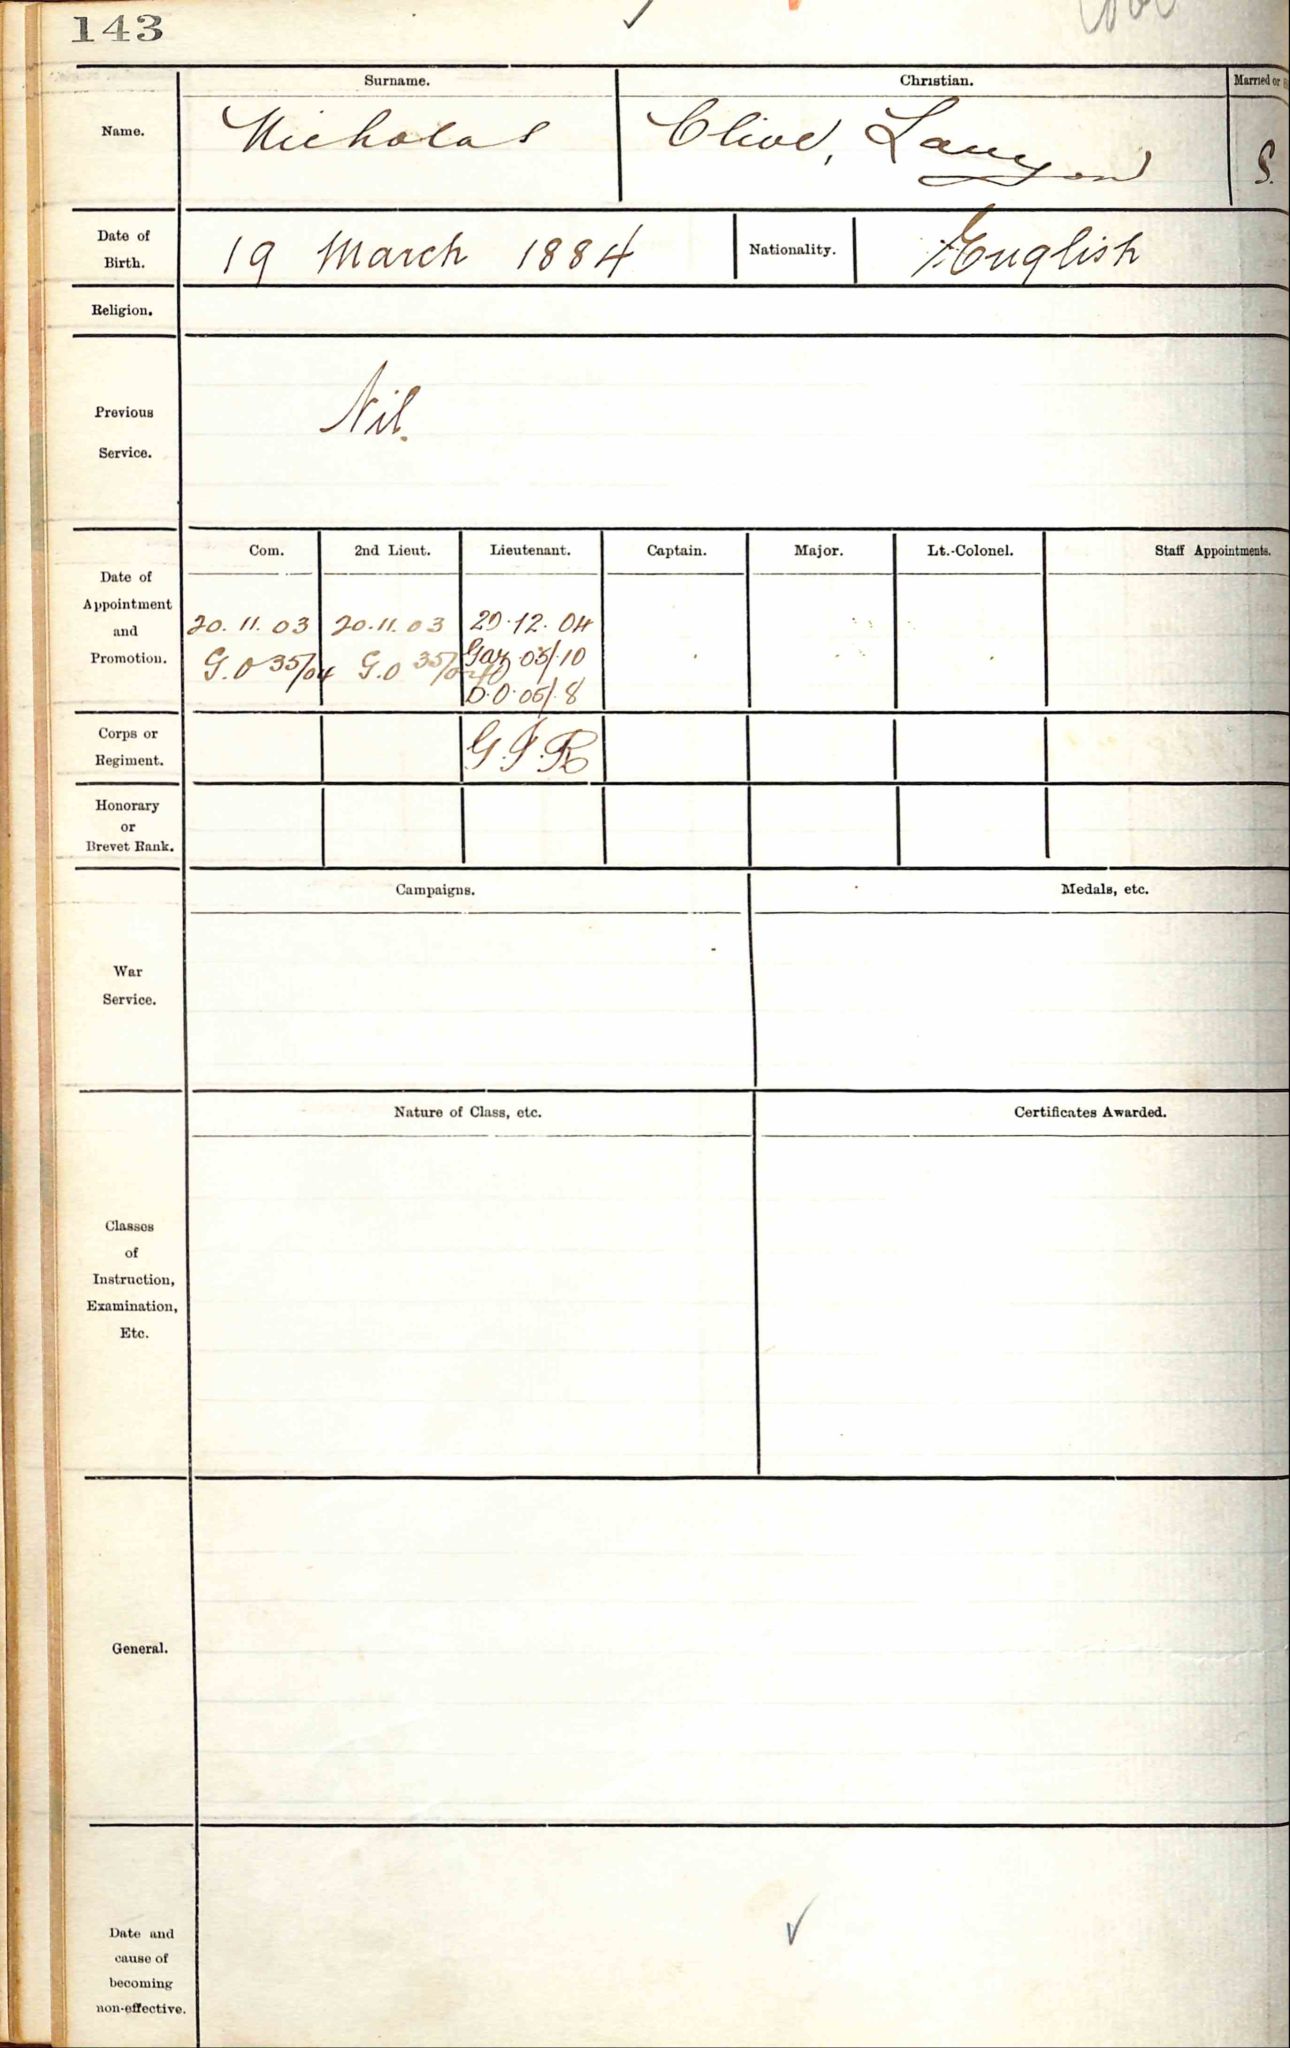 143
Surname.
Christian.
Married or
Name.
Nicholas
Clive, Lanyon
S.
Date of
Birth.
19 March 1884
Nationality.
English
Religion.
Previous
Service.
Nil.
Date of
Appointment
and
Promotion.
Com.
2nd Lieut.
Lieutenant.
Captain.
Major.
Lt.-Colonel.
Staff Appointments.
20.11.03
20.11.03
29.12.04
G.O 35/04
G.O 35/04
Gaz 05/10
D.O.05/.8
Corps or
Regiment.
G.I.R
Honorary
or
Brevet Rank.
War
Service.
Campaigns.
Medals, etc.
Classes
of
Instruction,
Examination,
Etc.
Nature of Class, etc.
Certificates Awarded.
General.
Date and
cause of
becoming
non-effective.